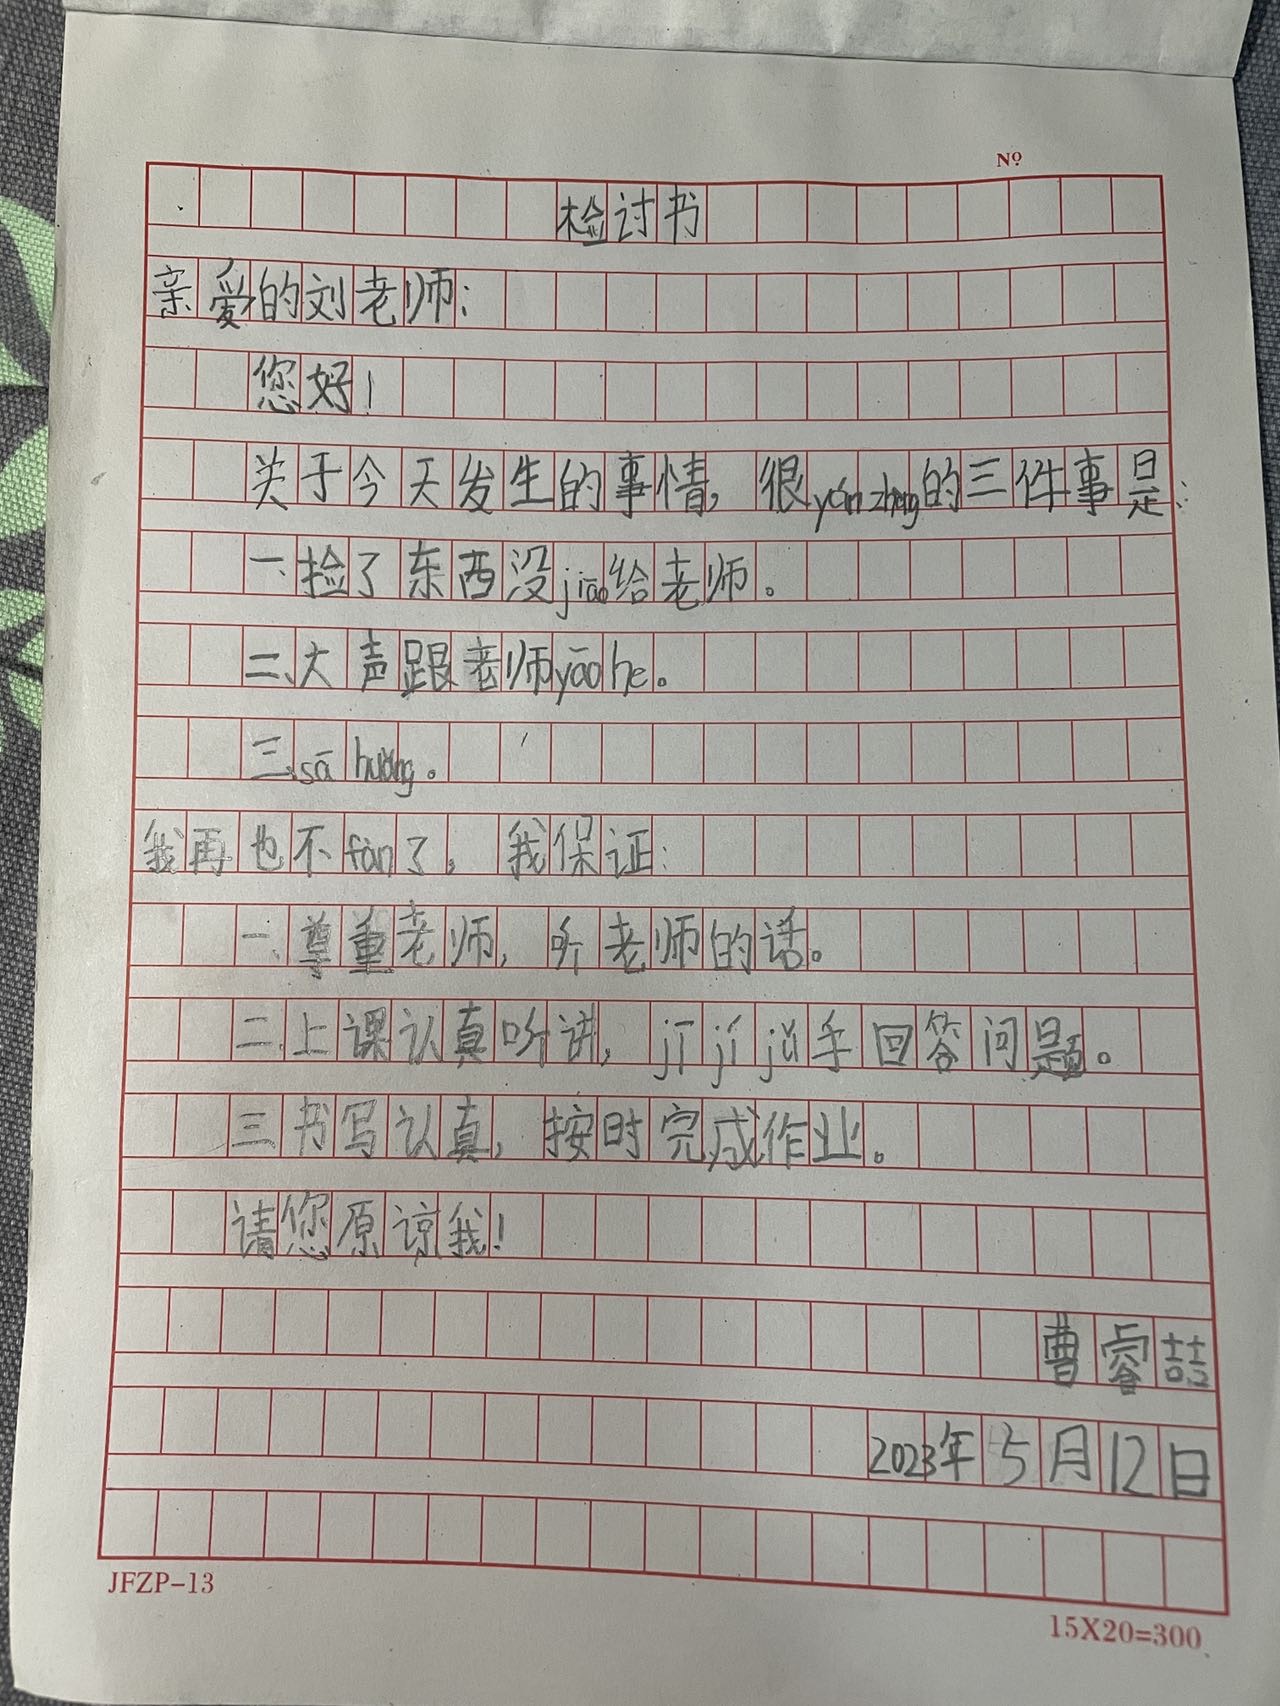 №
检讨书
亲爱的刘老师:
您好!
关于今天发生的事情,很yán zhòng的三件事是:
一、捡了东西没jiāo给老师。
二、大声跟老师yāo he。
三、sā huǎng。
我再也不fàn了,我保证:
一、尊重老师,听老师的话。
二、上课认真听讲,jī jí jǔ手回答问题。
三书写认真,按时完成作业。
请您原谅我!
曹睿喆
2023年5月12日
JFZP-13
15X20=300